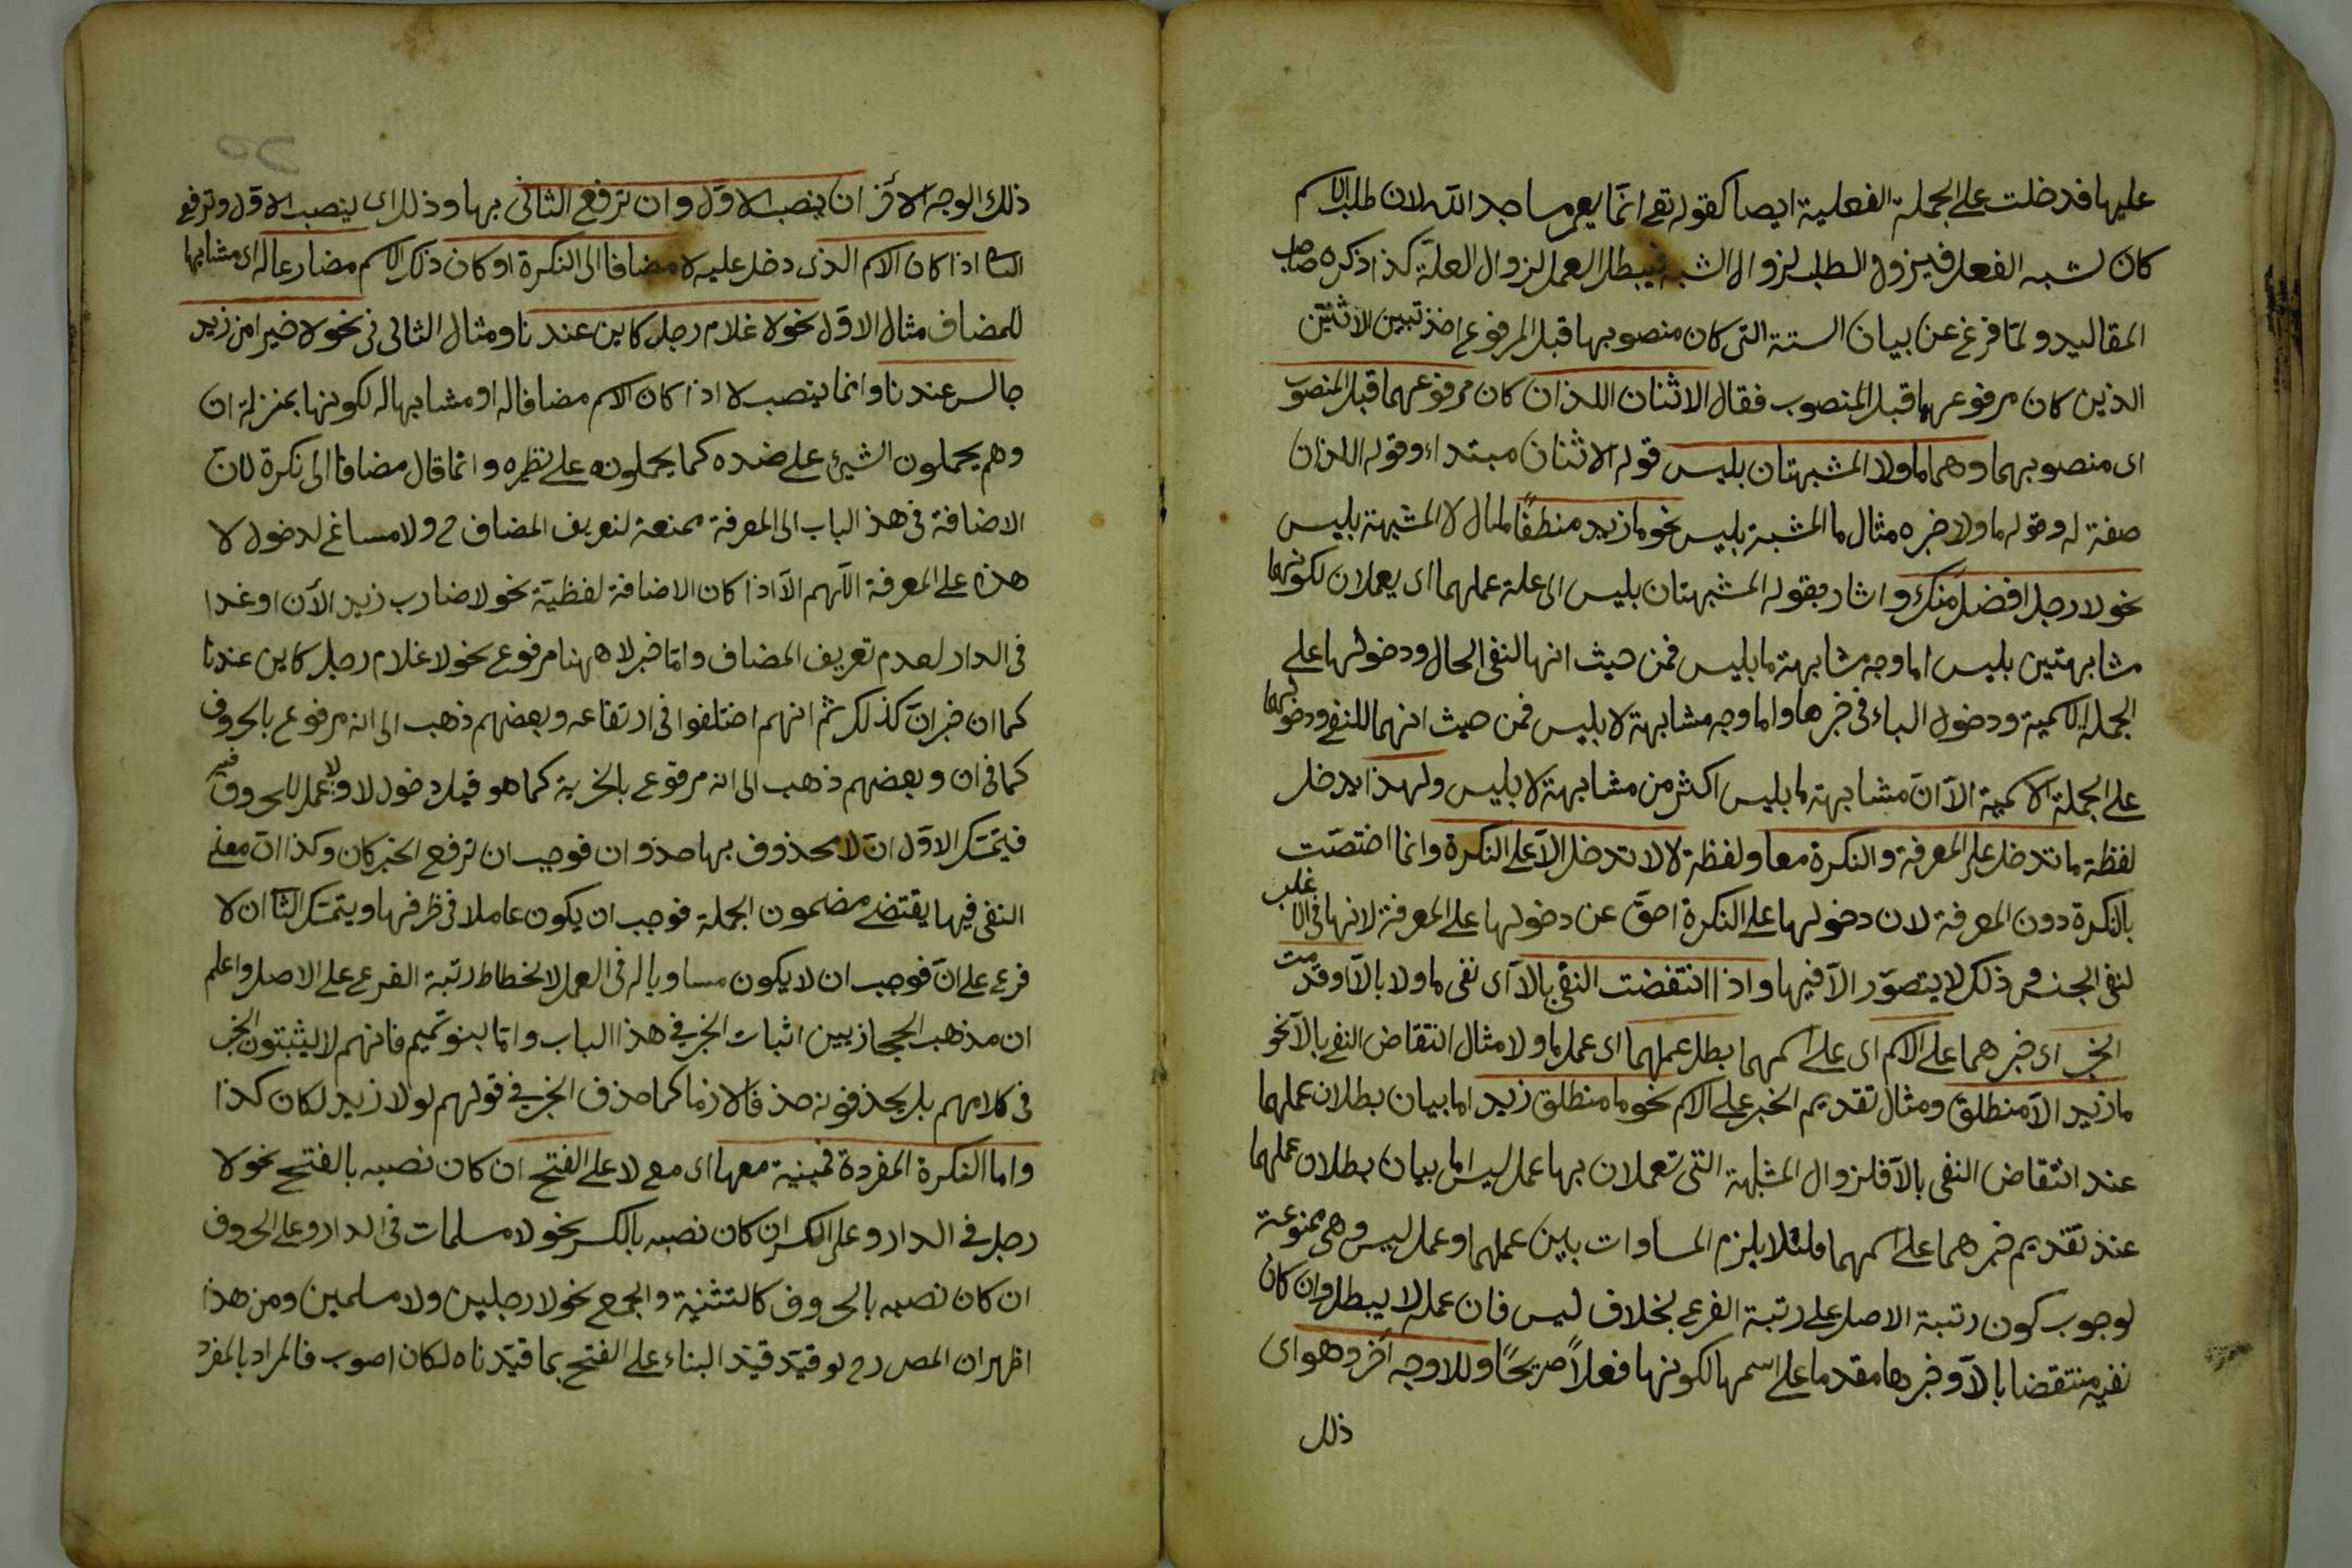 عليها فدخلت على الجملة الفعلية ايضا كقوله تع انما يعمر مساجد الله لان طلب الاسم
كان لشبه الفعل فيزول الطلب لزوال الشبه فيبطل العمل لزوال العلة كذا ذكره صاحب
المقاليد ولمّا فرغ عن بيان الستة التى كان منصوبها قبل المرفوع اخذ تبيين الاثنين
الذين كان مرفوعهما قبل المنصوب فقال الاثنان اللذان كان مرفوعهما قبل المنصوب
اى منصوبهما وهما ما ولا المشبهتان بليس قوله الاثنان مبتداء وقوله اللذان
صفة له وقوله ما ولا خبره مثال ما المشبهة بليس نحو ما زيد منطلقًا مثال لا المشبهة بليس
نحو لا رجل افضلَ منك واشار بقوله المشبهتان بليس الى علة عملهما اى يعملان لكونهما
مشابهتين بليس اما وجه مشابهة ما بليس فمن حيث انها لنفى الحال ودخولها على
الجملة الاسمية ودخول الباء فى خبرها واما وجه مشابهة لا بليس فمن حيث انهما للنفى ودخولهما
على الجملة الاسمية الاّ انّ مشابهة ما بليس اكثر من مشابهة لا بليس ولهذا يدخل
لفظة ما تدخل على المعرفة والنكرة معا ولفظة لا لا تدخل الاّ على النكرة وانما اختصّت
بالنكرة دون المعرفة لان دخولها على النكرة احقّ عن دخولها على المعرفة لانها فى الاغلب
لنفى الجنس وذلك لا يتصوّر الاّ فيها واذا انتقضت النفى بالاّ اى نفى ما ولا بالاّ او قدمت
الخبر اى خبرهما على الاسم اى على اسمهما بطل عملهما اى عمل ما ولا مثال انتقاض النفى بالاّ نحو
ما زيد الاّ منطلق ومثال تقديم الخبر على الاسم نحو ما منطلق زيد اما بيان بطلان عملهما
عند انتقاض النفى بالاّ فلزوال المشابهة التى تعملان بها عمل ليس اما بيان بطلان عملهما
عند تقديم خبرهما على اسمهما فلئلا يلزم المساوات بين عملهما وعمل ليس وهى ممنوعة
لوجوب كون رتبة الاصل على رتبة الفرع بخلاف ليس فان عمله لا يبطل وان كان
نفيه منتقضا بالاّ وخبرها مقدما على اسمها لكونها فعلاً صريحًا وللا وجه آخر وهو اى
ذلك
ذلك الوجه الآخر ان ينصب الاوّل وان ترفع الثانى بها وذلك اى ينصب الاول وترفع
الثانى اذا كان الاسم الذى دخل عليه لا مضافا الى النكرة او كان ذلك الاسم مضارعا له اى مشابها
للمضاف مثال الاوّل نحو لا غلام رجل كاين عندنا ومثال الثانى فى نحو لا خيرا من زيد
جالس عندنا وانما ينصب لا اذا كان الاسم مضافا له او مشابها له لكونها بمنزلة ان
وهم يحملون الشيئ على ضده كما يحملونه على نظيره وانما قال مضافا الى نكرة لان
الاضافة فى هذ الباب الى المعرفة ممنعة لتعريف المضاف ح ولا مساغ لدخول لا
هذه على المعرفة اللّهم الاّ اذا كان الاضافة لفظيّة نحو لا ضارب زيد الآن او غدا
فى الدار لعدم تعريف المضاف واما خبر لا ههنا مرفوع نحو لا غلام رجل كاين عندنا
كما ان خبر انّ كذلك ثم انهم اختلفوا فى ارتفاعه وبعضهم ذهب الى انه مرفوع بالحروف
كما فى ان وبعضهم ذهب الى انه مرفوع بالخبرية كما هو قبل دخول لا ولا عمل للحروف فيه
فيتمسّك الاوّل انّ لا محذوف بها حذو ان فوجب ان ترفع الخبر كان وكذا انّ معنى
النفى فيها يقتضى مضمون الجملة فوجب ان يكون عاملا فى طرفها ويتمسّك الثا ان لا
فرع على انّ فوجب ان لا يكون مساويا له فى العمل لانحطاط رتبة الفرع على الاصل واعلم
ان مذهب الحجازيين اثبات الخبر فى هذا الباب وامّا بنو تميم فانهم لا يثبتون الخبر
فى كلامهم بل يحذفونه حذفا لازما كما حذف الخبر فى قولهم لولا زيد لكان كذا
واما النكرة المفردة فمبنية معها اى مع لا على الفتح ان كان نصبه بالفتح نحو لا
رجل فى الدار وعلى الكسر ان كان نصبه بالكسر نحو لا مسلمات فى الدار وعلى الحروف
ان كان نصبه بالحروف كالتثنية والجمع نحو لا رجلين ولا مسلمين ومن هذا
اظهر ان المص رح لو قيّد قيّد البناء على الفتح بما قيّدناه لكان اصوب فالمراد بالمفرد